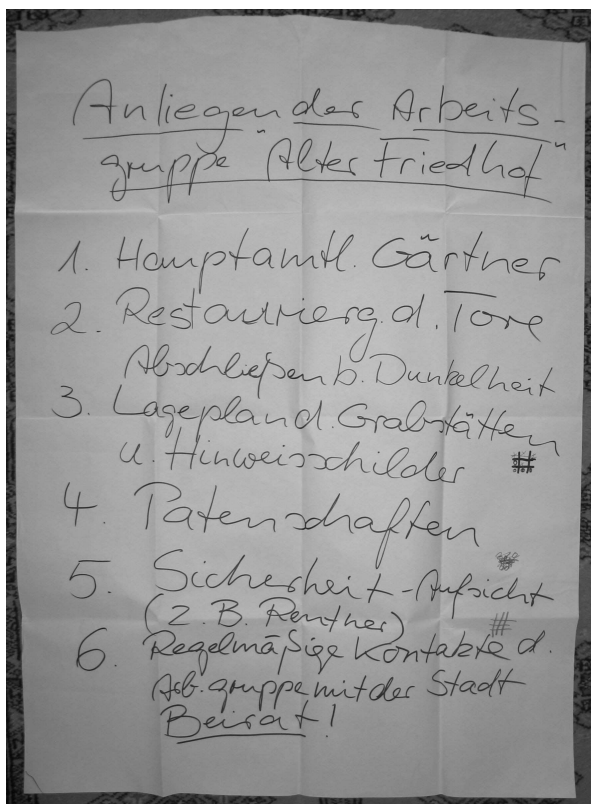 Anliegen der Arbeits-
gruppe "Alter Friedhof"
1. Hauptamtl. Gärtner
2. Restaurierg. d. Tore
Abschließen b. Dunkelheit
3. Lageplan d. Grabstätten
u. Hinweisschilder #
4. Patenschaften
5. Sicherheit-Aufsicht
(z. B. Rentner) #
6. Regelmäßige Kontakte d.
Arb.gruppe mit der Stadt
Beirat!